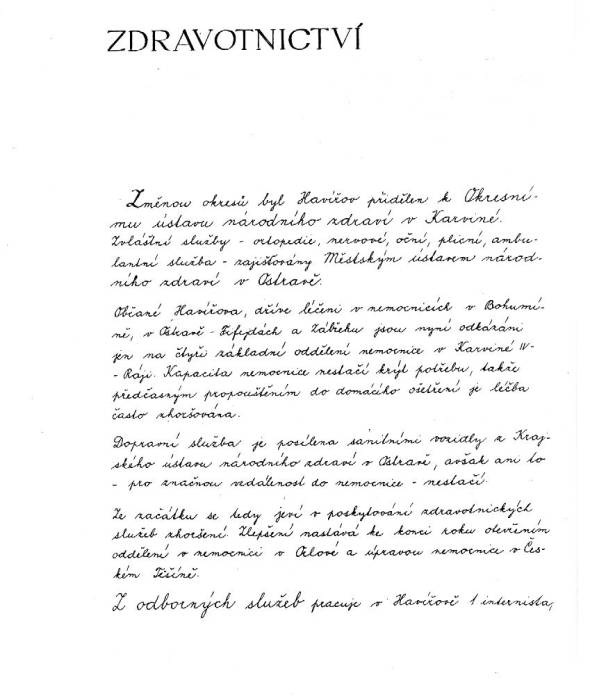 ZDRAVOTNICTVÍ
Změnou okresů byl Havířov přidělen k Okresní-
mu ústavu národního zdraví v Karviné.
Zvláštní služby - ortopedie, nervové, oční, plicní, ambu-
lantní služba - zajišťovány Městským ústavem národ-
ního zdraví v Ostravě.
Občané Havířova, dříve léčeni v nemocnicích v Bohumí-
ně, v Ostravě - Fifejdách a Zábřehu jsou nyní odkázáni
jen na čtyři základní oddělení nemocnice v Karviné IV-
- Ráji. Kapacita nemocnice nestačí krýt potřebu, takže
předčasným propouštěním do domácího ošetření je léčba
často zhoršována.
Dopravní služba je posílena sanitními vozidly z Kraj-
ského ústavu národního zdraví v Ostravě, avšak ani to
- pro značnou vzdálenost do nemocnice - nestačí.
Ze začátku se tedy jeví v poskytování zdravotnických
služeb zhoršení. Zlepšení nastává ke konci roku otevřením
oddělení v nemocnici v Orlové a úpravou nemocnice v Čes-
kém Těšíně.
Z odborných služeb pracuje v Havířově 1 internista,